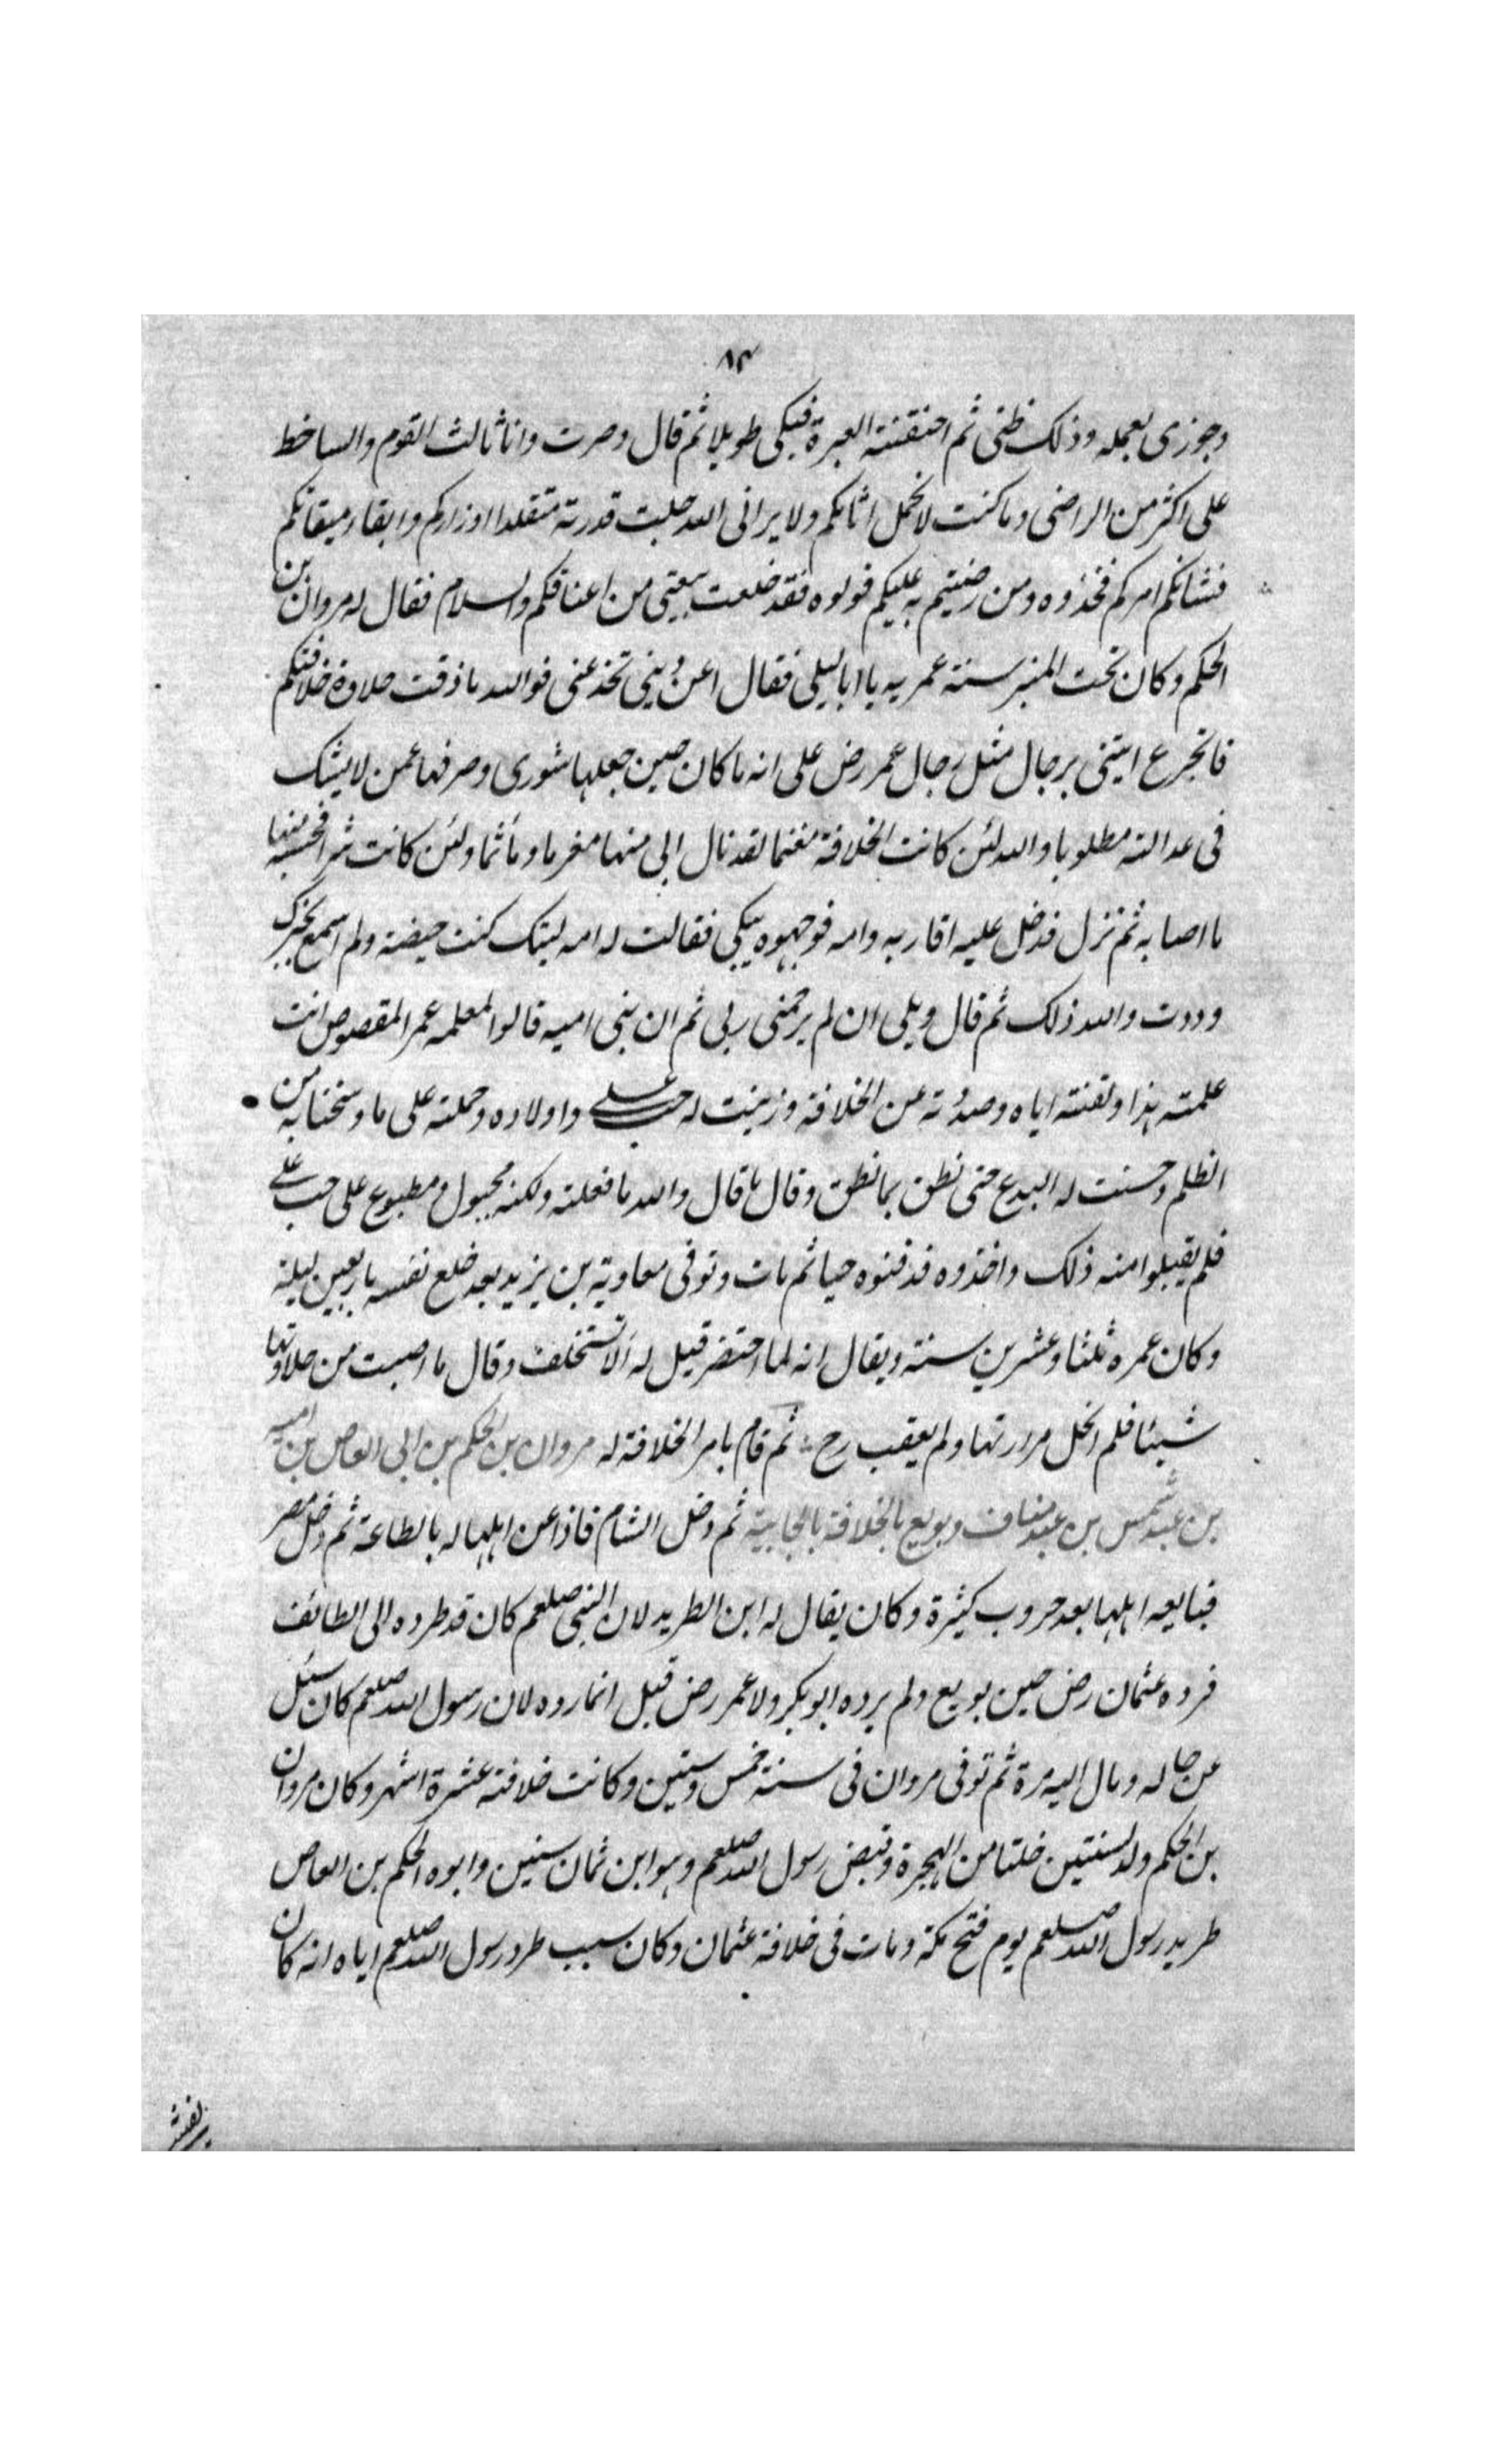 ٨٣
وجوزى بعمله وذلك ظنى ثم اختنقته العبرة فبكى طويلا ثم قال وصرت وانا ثالث القوم والساخط
على اكثر من الراضى وما كنت لاتحمل اثامكم ولا يرانى الله جلت قدرته متقلدا اوزاركم والقاه
فشانكم امركم فخذوه ومن رضيتم به عليكم فولوه فقد خلعت بيعتى من اعناقكم والسلام فقال له مروان بن
الحكم وكان تحت المنبر سنة عمريه يا ابا ليلى فقال اعن دينى تخدعنى فوالله ما ذقت حلاوة خلافتكم
فاتجرع ايتنى برجال مثل رجال عمر رض على انه ما كان حين جعلها شورى وصرفها عمن لا يشك
فى عدالته مطلوبا والله لئن كانت الخلافة مغنما لقد نال ابى منها مغرما ومأثما ولئن كانت شرا فحسبه منها
ما اصابه ثم نزل فدخل عليه اقاربه وامه فوجدوه يبكى فقالت له امه ليتك كنت حيضة ولم اسمع بخبرك
وددت والله ذلك ثم قال ويلى ان لم يرحمنى ربى ثم ان بنى اميه قالوا لمعلمه عمر المقصوص انت
علمته هذا ولقنته اياه وصددته عن الخلافة وزينت له حب على واولاده وحملته على ما وسمنا به من
الظلم وحسنت له البدع حتى نطق بما نطق وقال ما قال والله ما فعلته ولكنه مجبول ومطبوع على حب على
فلم يقبلوا منه ذلك واخذوه فدفنوه حيا ثم مات وتوفى معاوية بن يزيد بعد خلع نفسه باربعين ليلة
وكان عمره ثلثا وعشرين سنة ويقال انه لما احتضر قيل له الا تستخلف وقال ما اصبت من حلاوتها
شيئا فلم اتحمل مرارتها ولم يعقب رح ثم قام بامر الخلافة له مروان بن الحكم بن ابى العاص بن اميه
بن عبد شمس بن عبد مناف وبويع بالخلافة بالجابية ثم دخل الشام فاذاعن اهلها له بالطاعة ثم دخل مصر
فبايعه اهلها بعد حروب كثيرة وكان يقال له ابن الطريد لان النبى صلعم كان قد طرده الى الطائف
فرده عثمان رض حين بويع ولم يرده ابو بكر ولا عمر رض قيل انما رده لان رسول الله صلعم كان سئل
عن حاله ومال اليه مرة ثم توفى مروان فى سنة خمس وستين وكانت خلافته عشرة اشهر وكان مروان
بن الحكم ولد لسنتين خلتا من الهجرة وقبض رسول الله صلعم وهو ابن ثمان سنين وابوه الحكم بن العاص
طريد رسول الله صلعم يوم فتح مكة ومات فى خلافة عثمان وكان سبب طرد رسول الله صلعم اياه انه كان